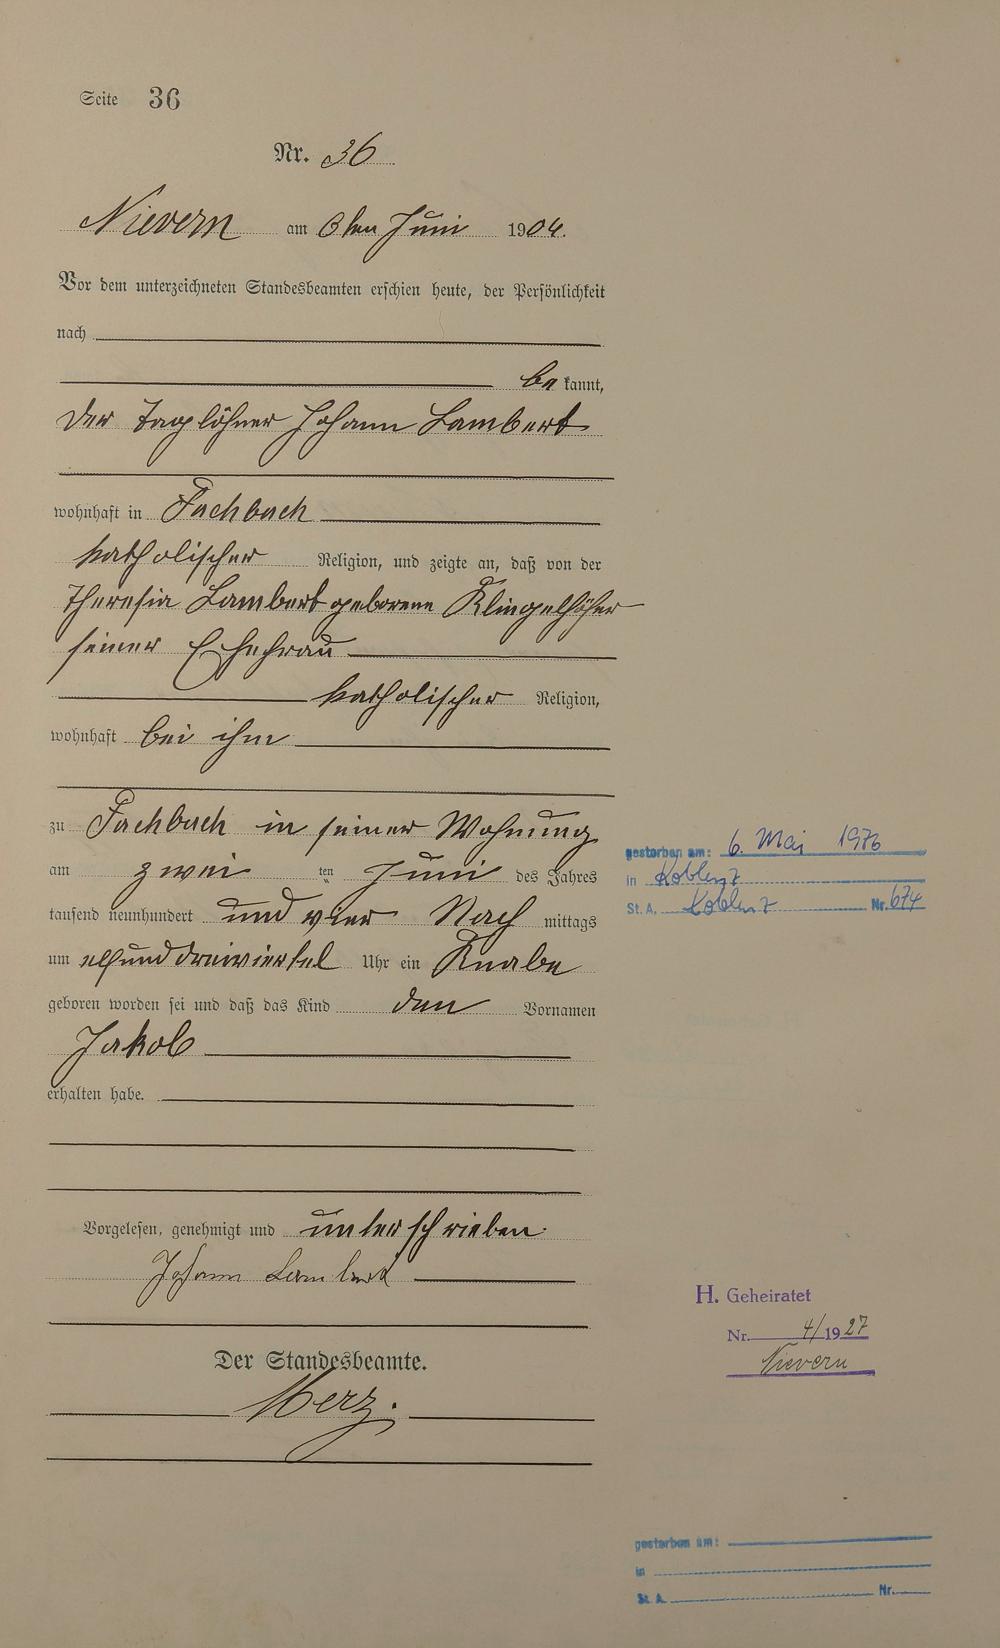 Seite 36
Nr. 36
Nievern am 6ten Juni 1904.
Vor dem unterzeichneten Standesbeamten erschien heute, der Persönlichkeit
nach
be kannt,
der Taglöhner Johann Lambert
wohnhaft in Fachbach
katholischer Religion, und zeigte an, daß von der
Theresia Lambert geborene Klingelhöfer
seiner Ehefrau
katholischer Religion,
wohnhaft bei ihm
zu Fachbach in seiner Wohnung
am zwei ten Juni des Jahres
tausend neunhundert und vier Nach mittags
um elfunddreiviertel Uhr ein Knabe
geboren worden sei und daß das Kind den Vornamen
Jakob
erhalten habe.
Vorgelesen, genehmigt und unterschrieben
Johann Lambert
Der Standesbeamte.
Merz.
gestorben am: 6. Mai 1976
in Koblenz
St. A. Koblenz Nr. 674
H. Geheiratet
Nr. 4/1927
Nievern
gestorben am:
in
St. A. Nr.